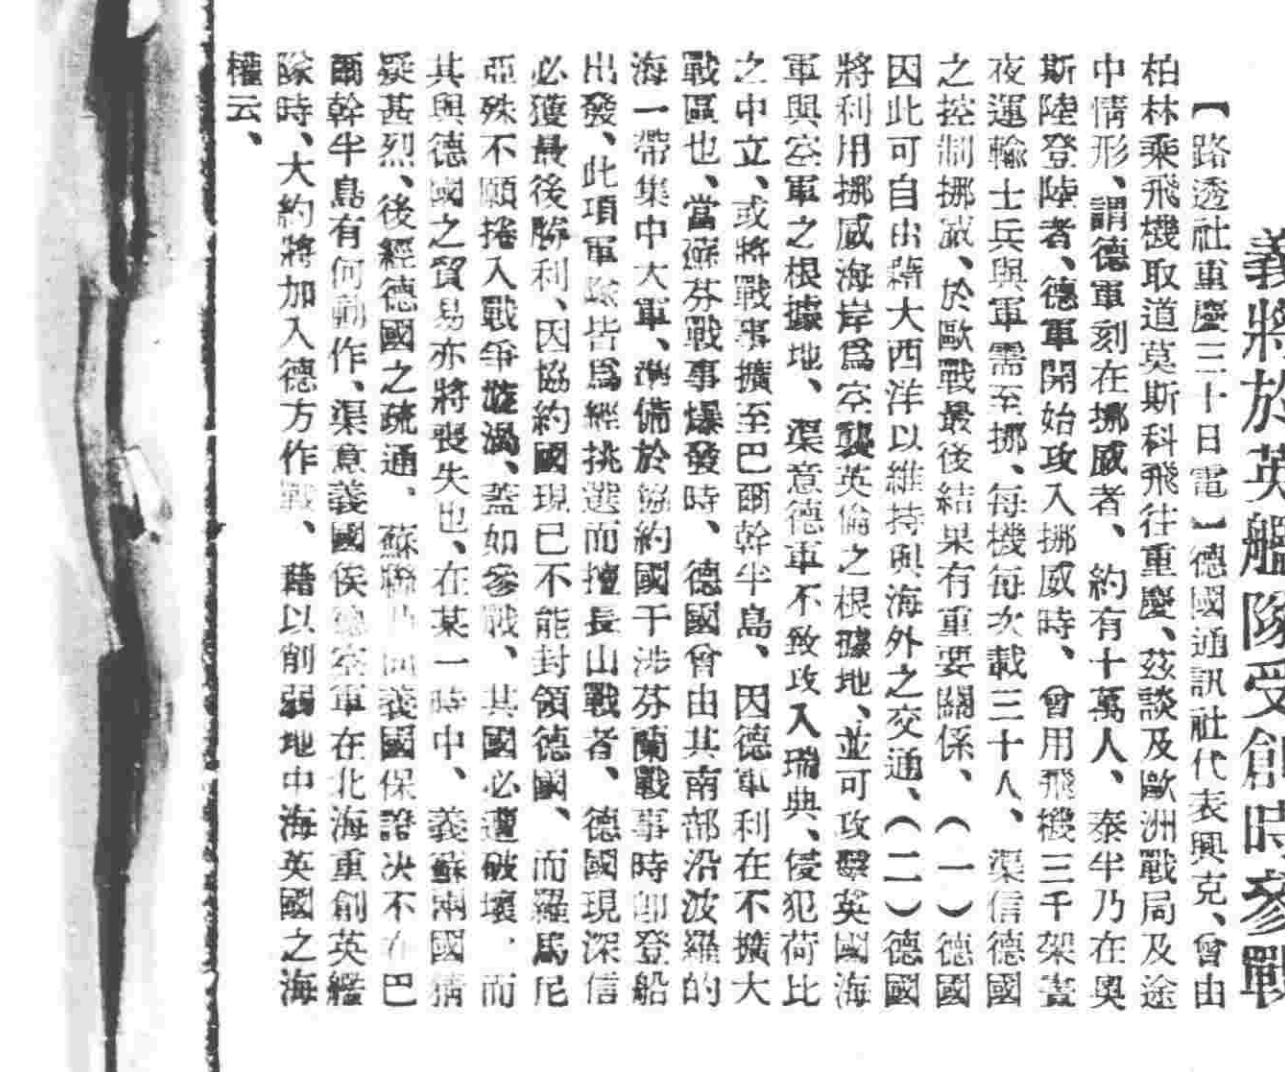 義將於英艦隊受創時參戰
【路透社重慶三十日電】德國通訊社代表興克、曾由
柏林乘飛機取道莫斯科飛往重慶、茲談及歐洲戰局及途
中情形、謂德軍刻在挪威者、約有十萬人、泰半乃在奧
斯陸登陸者、德軍開始攻入挪威時、曾用飛機三千架晝
夜運輸士兵與軍需至挪、每機每次載三十人、渠信德國
之控制挪威、於歐戰最後結果有重要關係、（一）德國
因此可自由藉大西洋以維持與海外之交通、（二）德國
將利用挪威海岸爲空襲英倫之根據地、並可攻擊英國海
軍與空軍之根據地、渠意德軍不致攻入瑞典、侵犯荷比
之中立、或將戰事擴至巴爾幹半島、因德軍利在不擴大
戰區也、當蘇芬戰事爆發時、德國曾由其南部沿波羅的
海一帶集中大軍、準備於協約國干涉芬蘭戰事時卽登船
出發、此項軍隊皆爲經挑選而擅長山戰者、德國現深信
必獲最後勝利、因協約國現已不能封鎖德國、而羅馬尼
亞殊不願捲入戰爭旋渦、蓋如參戰、其國必遭破壞、而
其與德國之貿易亦將喪失也、在某一時中、義蘇兩國猜
疑甚烈、後經德國之疏通、蘇聯乃向義國保證决不在巴
爾幹半島有何動作、渠意義國俟德空軍在北海重創英艦
隊時、大約將加入德方作戰、藉以削弱地中海英國之海
權云、